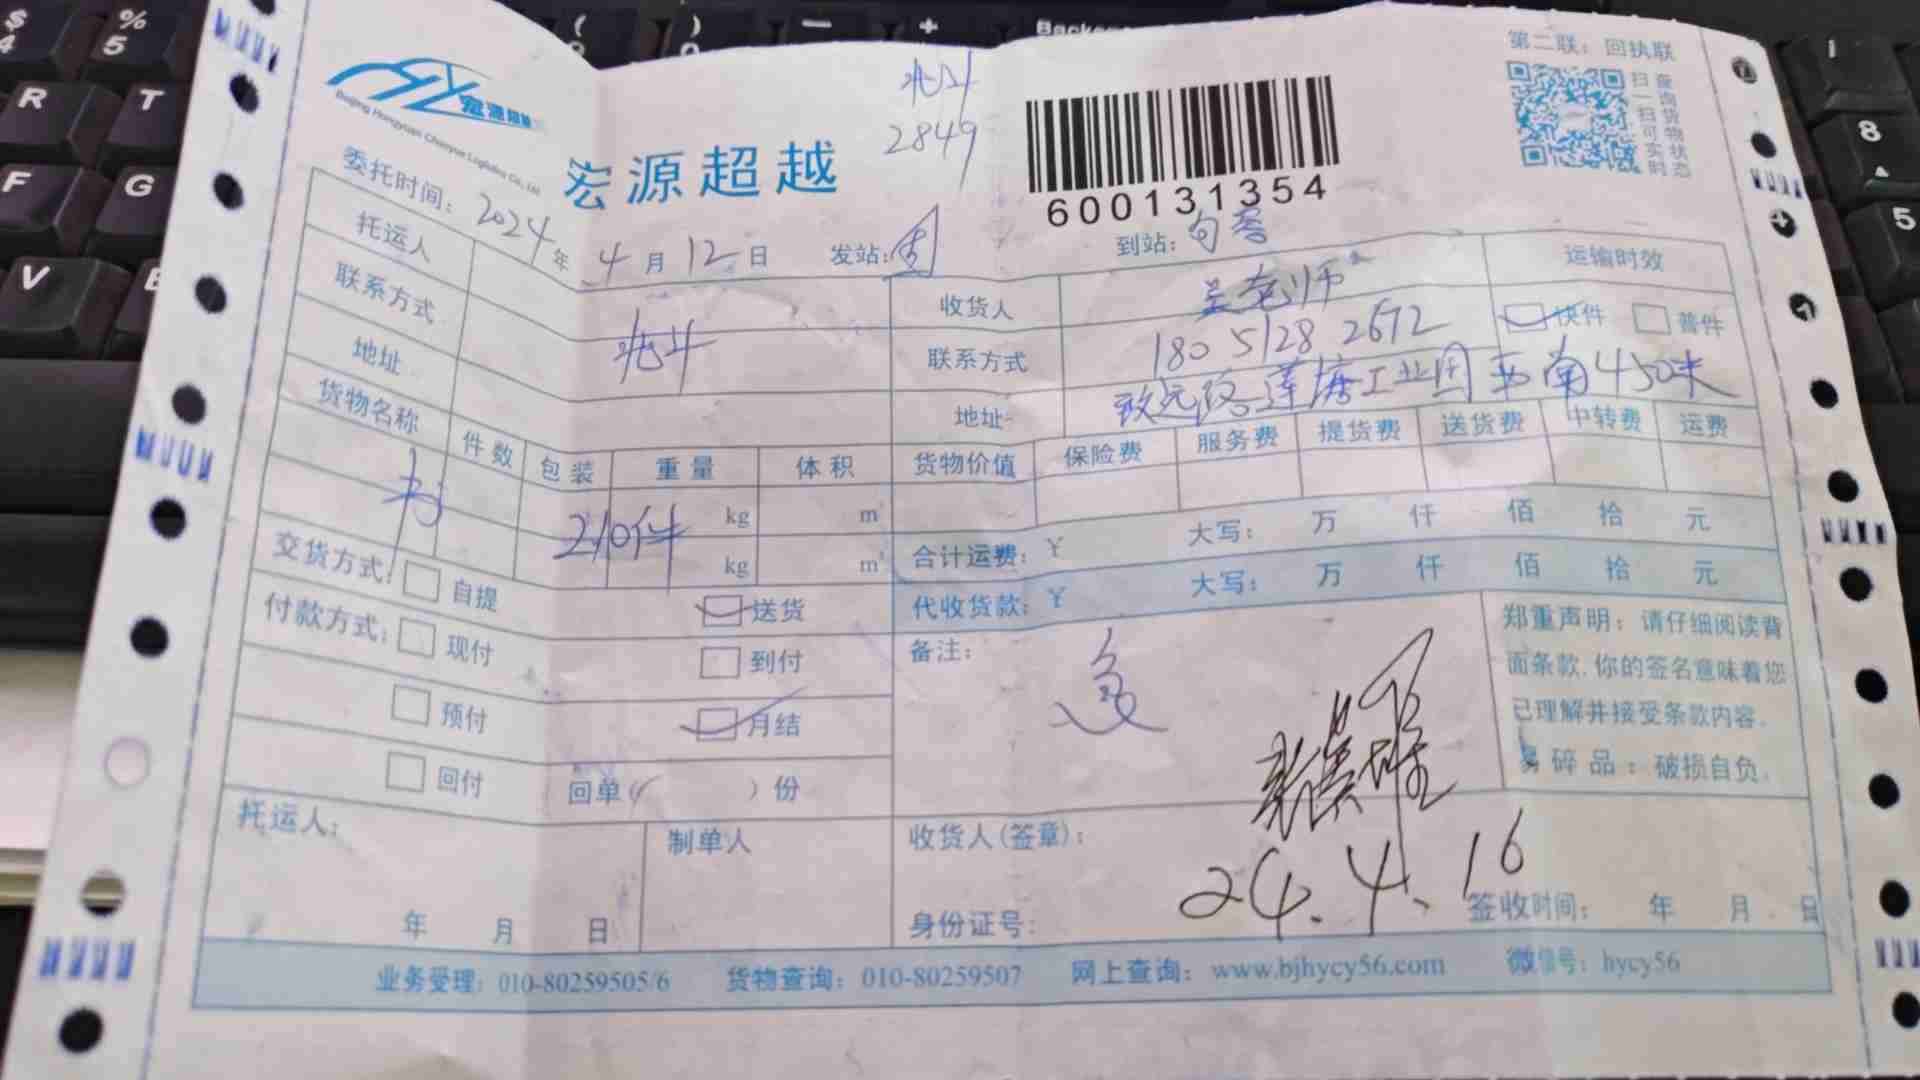 第二联：回执联
扫一扫可实时
查询货物状态
宏源超越
Beijing Hongyuan Chaoyue Logistics Co., Ltd.
宏源超越
北斗
2849
600131354
委托时间：2024年4月12日 发站： 到站：句容
托运人 收货人 吴老师 运输时效
联系方式 北斗 联系方式 180 5128 2672 快件 普件
地址 地址 致远路莲塘工业园西南450米
货物名称 件数 包装 重量 体积 货物价值 保险费 服务费 提货费 送货费 中转费 运费
书 210件 kg m³
kg m³
合计运费：￥ 大写： 万 仟 佰 拾 元
代收货款：￥ 大写： 万 仟 佰 拾 元
交货方式：自提 送货
付款方式：现付 到付
预付 月结
回付 回单( )份
备注：
郑重声明：请仔细阅读背
面条款，你的签名意味着您
已理解并接受条款内容。
易碎品：破损自负。
托运人： 制单人 收货人(签章)：
24.4.16
年 月 日 身份证号： 签收时间： 年 月 日
业务受理：010-80259505/6 货物查询：010-80259507 网上查询：www.bjhycy56.com 微信号：hycy56
$ 4 % 5 ( ) — + Backs
R T
F G
V
8
5